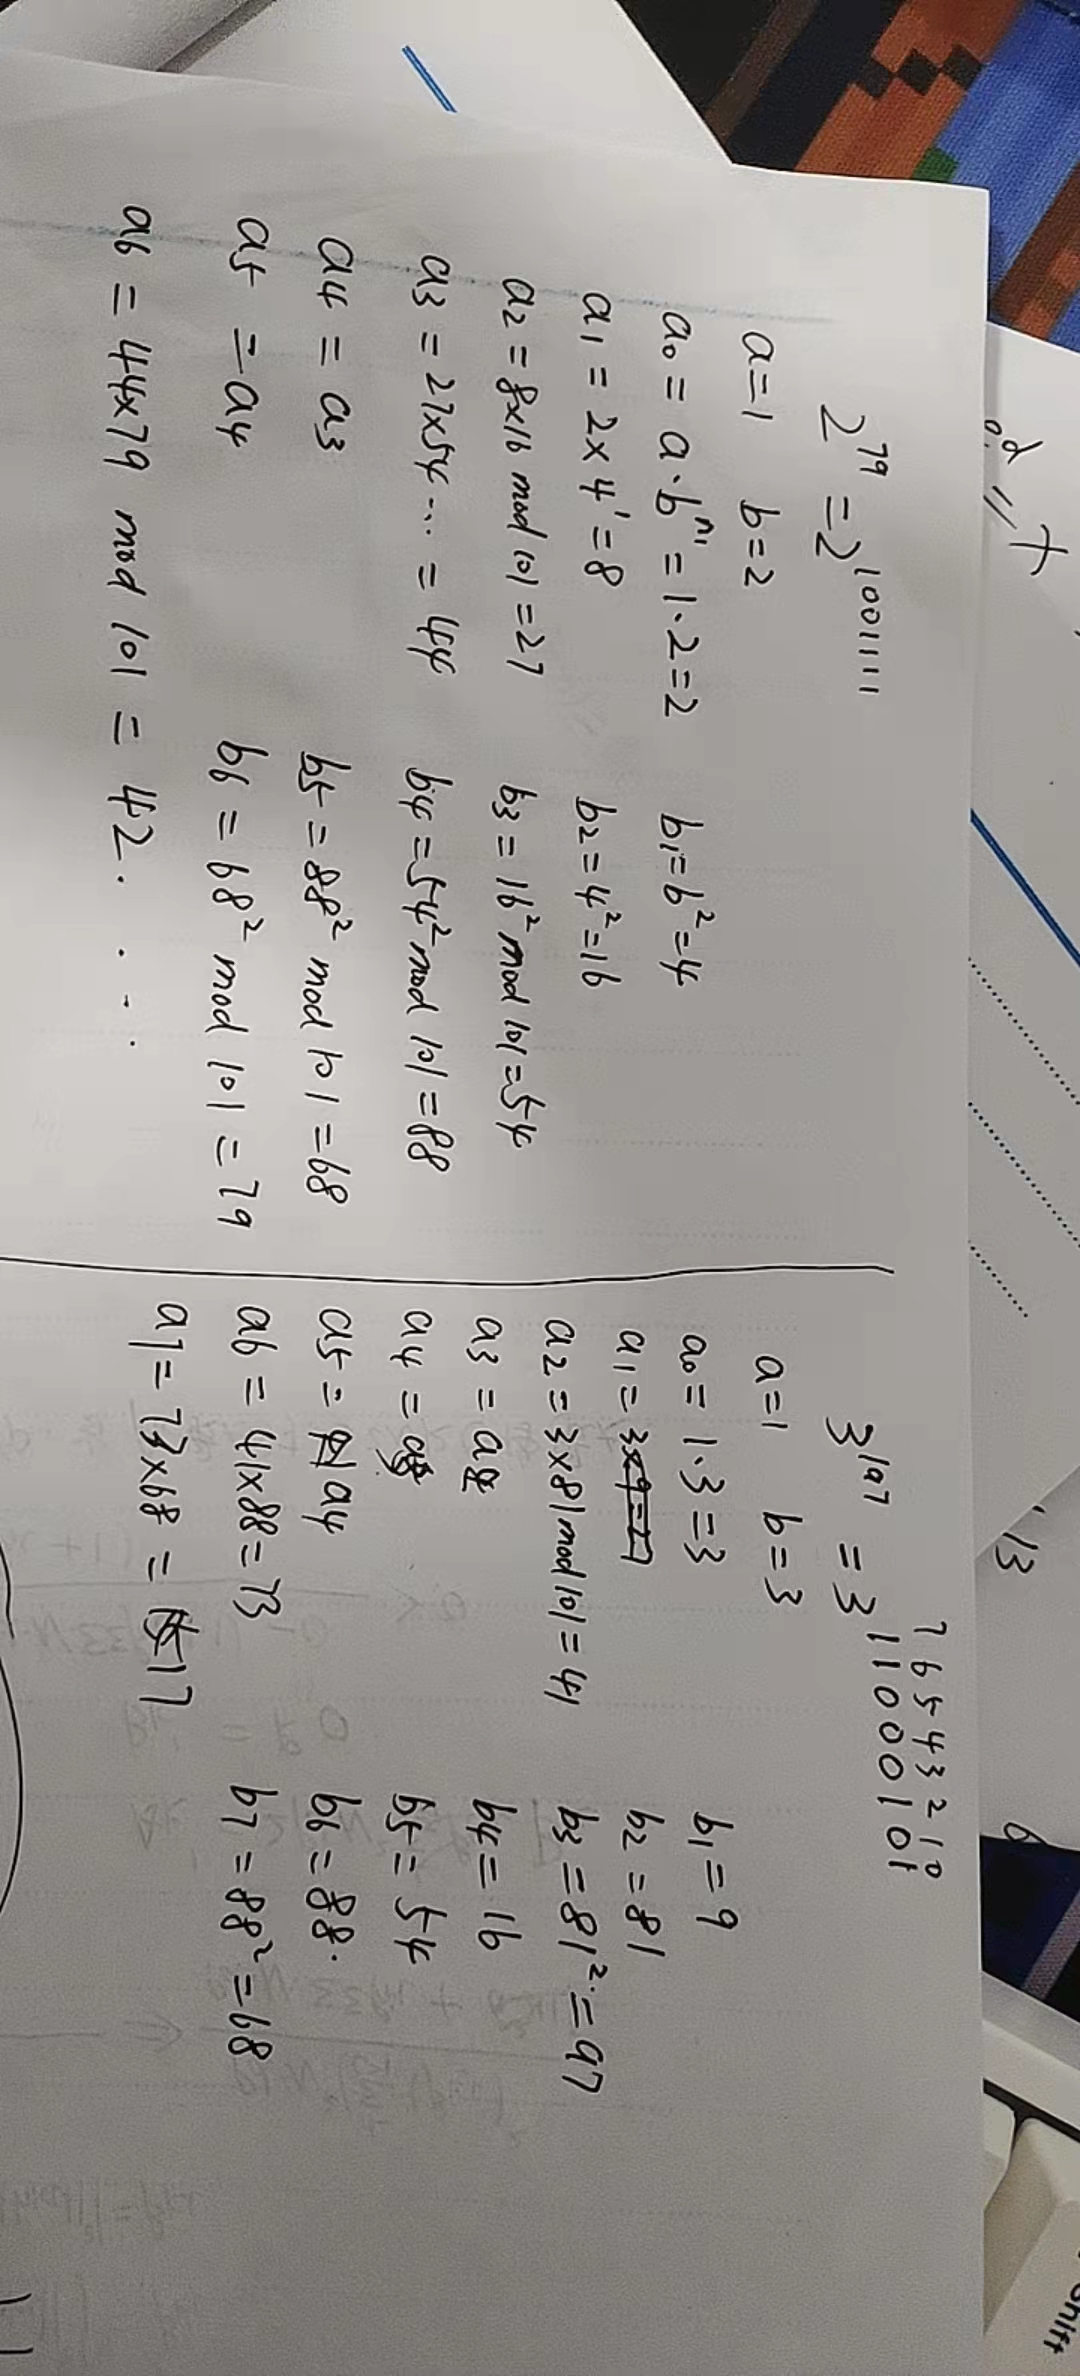 2^79 = 2^1001111
a=1 b=2
a0 = a·b^n1 = 1·2=2 b1=b^2=4
a1 = 2×4^1=8 b2=4^2=16
a2=8×16 mod 101=27 b3=16^2 mod 101=54
a3=27×54...=44 b4=54^2 mod 101=88
a4=a3 b5=88^2 mod 101=68
a5=a4 b6=68^2 mod 101=79
a6=44×79 mod 101=42. . . .
7 6 5 4 3 2 1 0
3^197 = 3^11000101
a=1 b=3
a0=1·3=3 b1=9
a1=3×9=27 b2=81
a2=3×81 mod 101=41 b3=81^2=97
a3=a2 b4=16
a4=a3 b5=54
a5=a4 b6=88.
a6=41×88=73 b7=88^2=68
a7=73×68=17
Shift